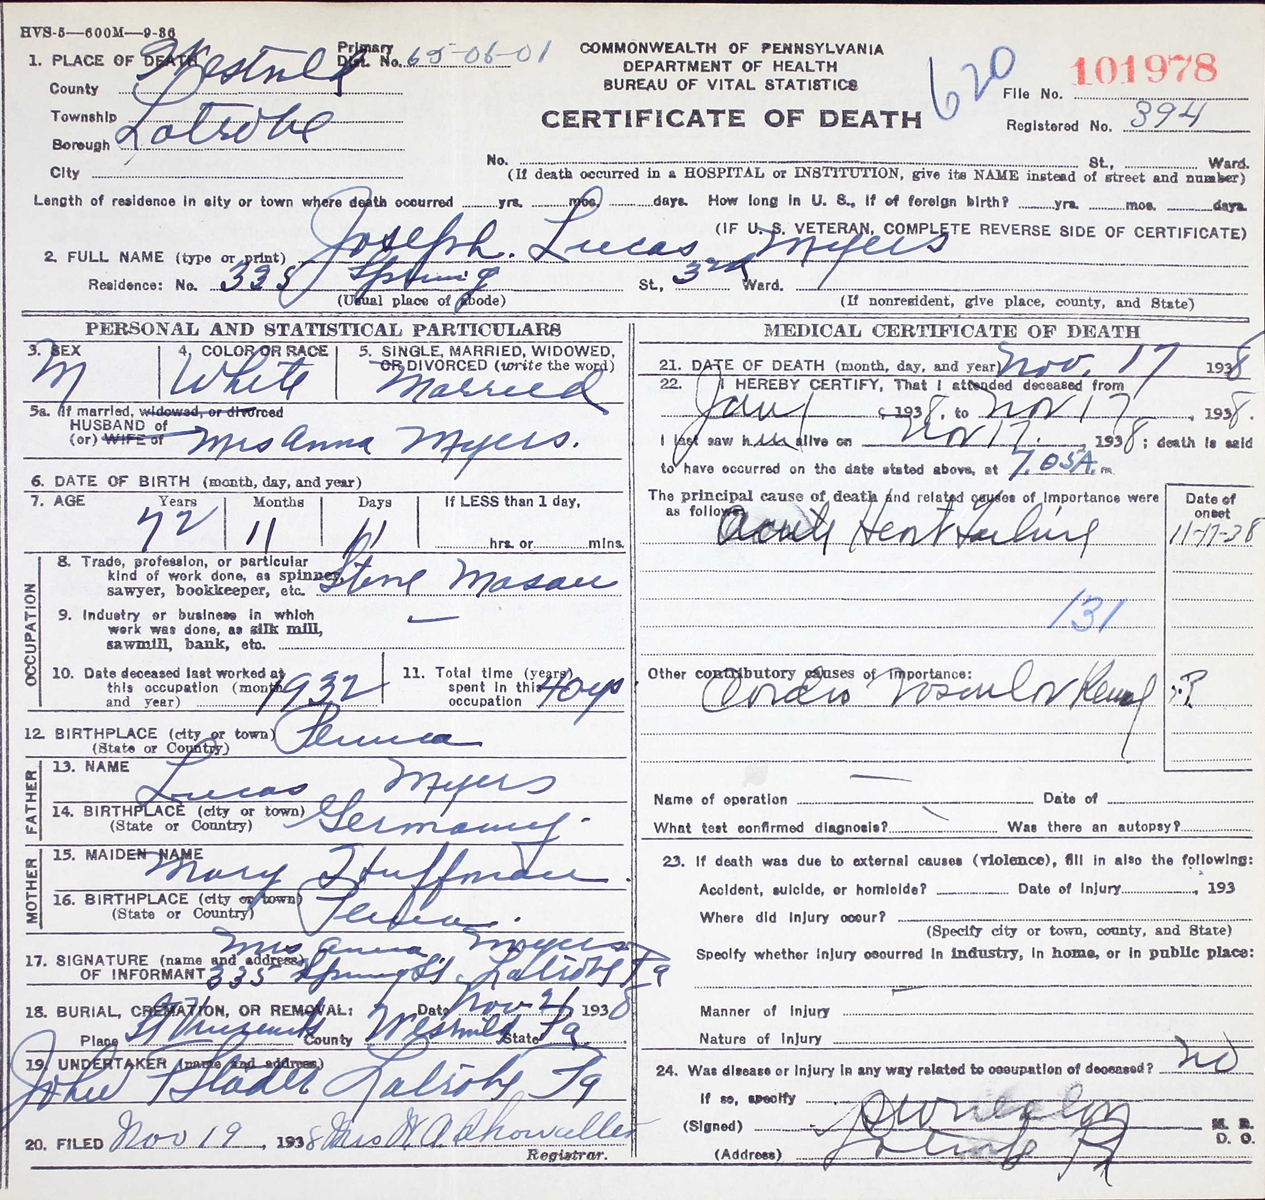 HVS-5—600M—9-36
1. PLACE OF DEATH Westmld
Primary Dist. No. 65-06-01
County
Township Latrobe
Borough
City
COMMONWEALTH OF PENNSYLVANIA
DEPARTMENT OF HEALTH
BUREAU OF VITAL STATISTICS
CERTIFICATE OF DEATH
620
File No. 101978
Registered No. 394
No. St., Ward.
(If death occurred in a HOSPITAL or INSTITUTION, give its NAME instead of street and number)
Length of residence in city or town where death occurred yrs. mos. days. How long in U. S., if of foreign birth? yrs. mos. days.
(IF U. S. VETERAN, COMPLETE REVERSE SIDE OF CERTIFICATE)
2. FULL NAME (type or print) Joseph Lucas Myers
Residence: No. 335 Spring St., 3rd Ward.
(Usual place of abode) (If nonresident, give place, county, and State)
PERSONAL AND STATISTICAL PARTICULARS
3. SEX M
4. COLOR OR RACE White
5. SINGLE, MARRIED, WIDOWED, OR DIVORCED (write the word) Married
5a. If married, widowed, or divorced
HUSBAND of
(or) WIFE of Mrs Anna Myers.
6. DATE OF BIRTH (month, day, and year)
7. AGE Years Months Days If LESS than 1 day,
72 11 11 hrs. or mins.
OCCUPATION
8. Trade, profession, or particular
kind of work done, as spinner,
sawyer, bookkeeper, etc. Stone Mason
9. Industry or business in which
work was done, as silk mill,
sawmill, bank, etc.
10. Date deceased last worked at
this occupation (month
and year) 1932
11. Total time (years)
spent in this
occupation 40 yrs
12. BIRTHPLACE (city or town) Penna
(State or Country)
FATHER
13. NAME Lucas Myers
14. BIRTHPLACE (city or town)
(State or Country) Germany.
MOTHER
15. MAIDEN NAME Mary Huffman
16. BIRTHPLACE (city or town)
(State or Country) Penna.
17. SIGNATURE (name and address) Mrs Anna Myers
OF INFORMANT 335 Spring St. Latrobe Pa
18. BURIAL, CREMATION, OR REMOVAL: Date Nov 21 1938
Place St Vincents County Westmld State Pa.
19. UNDERTAKER (name and address)
John Latrobe Pa
20. FILED Nov 19, 1938 Mrs
Registrar.
MEDICAL CERTIFICATE OF DEATH
21. DATE OF DEATH (month, day, and year) Nov. 17 1938
22. I HEREBY CERTIFY, That I attended deceased from
Jan 1, 1938, to Nov 17, 1938.
I last saw him alive on Nov 17, 1938; death is said
to have occurred on the date stated above, at 7.05 A. m
The principal cause of death and related causes of importance were
as follows:
Date of
onset
Acute Heart Failure 11-17-38
131
Other contributory causes of importance:
Cardio Vascular Renal ?
Name of operation Date of
What test confirmed diagnosis? Was there an autopsy?
23. If death was due to external causes (violence), fill in also the following:
Accident, suicide, or homicide? Date of injury , 193
Where did injury occur?
(Specify city or town, county, and State)
Specify whether injury occurred in industry, in home, or in public place:
Manner of injury
Nature of injury
24. Was disease or injury in any way related to occupation of deceased? no
If so, specify
(Signed) M. D.
D. O.
(Address) Latrobe Pa